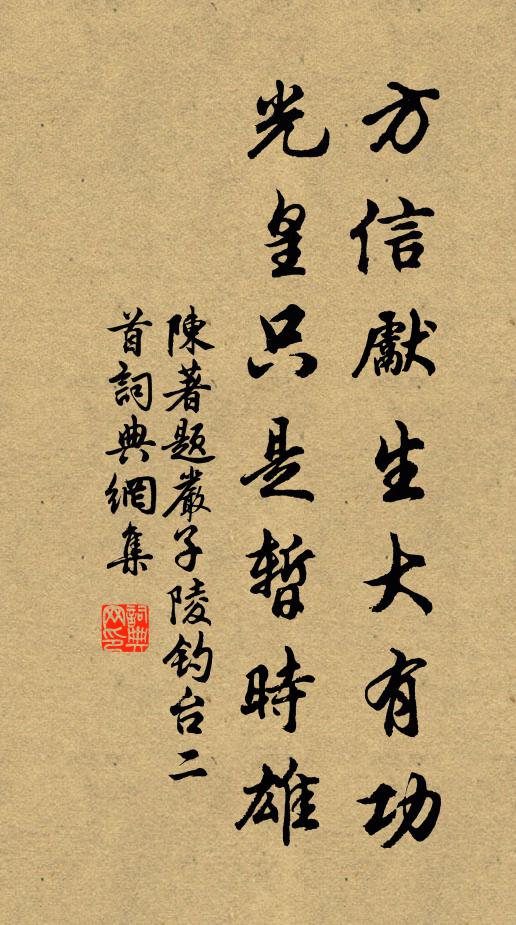 方信獻生大有功
光皇只是暫時雄
陳著題嚴子陵釣台二
首詞典網集
詞典
网印